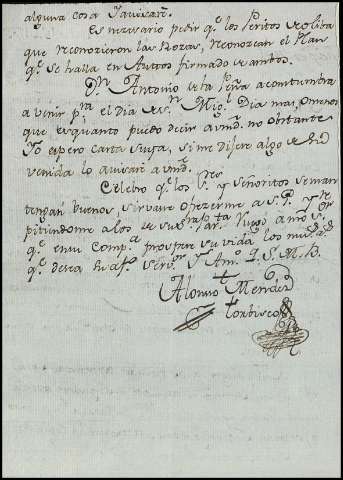 alguna cosa ia avisaré.
Es necesario pedir q.e los Peritos de oliba
que reconozieron las Hozas, reconozcan el Plan
q.e se halla en Auttos firmado de ambos.
D.n Antonio de la Peña acostumbra
a venir p.ra el dia de S.n Mig.l Dia mas, o menos
que es quanto puedo decir a vmd. no obstante
Yo espero carta suya, si me dijere algo de su
venida lo avisaré a vmd.
Celebro q.e los S.res y Señoritos se man
tengan buenos, sirvase ofrezerme a S. P.
pitiendome a los de su
q.e en su comp.a prospere su vida los m.s a.s
q.e desea su af.o Serv.or y Am.o Q. S. M. B.
Alonso Mendez
Torbisco